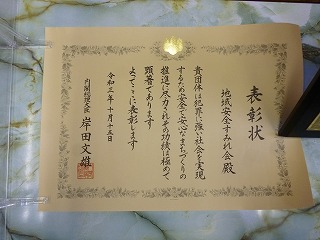 表彰状
地域安全すみれ会殿
貴団体は犯罪に強い社会を実現
するため安全・安心なまちづくりの
推進に尽力されその功績は極めて
顕著であります
よってここに表彰します
令和三年十月十五日
内閣総理大臣 岸田文雄